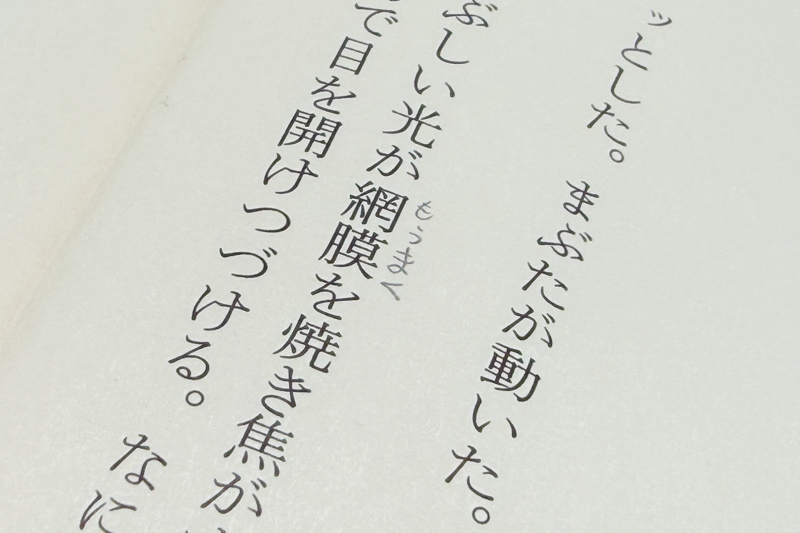 ッとした。まぶたが動いた。
ぶしい光が網膜を焼き焦が
もうまく
で目を開けつづける。なに